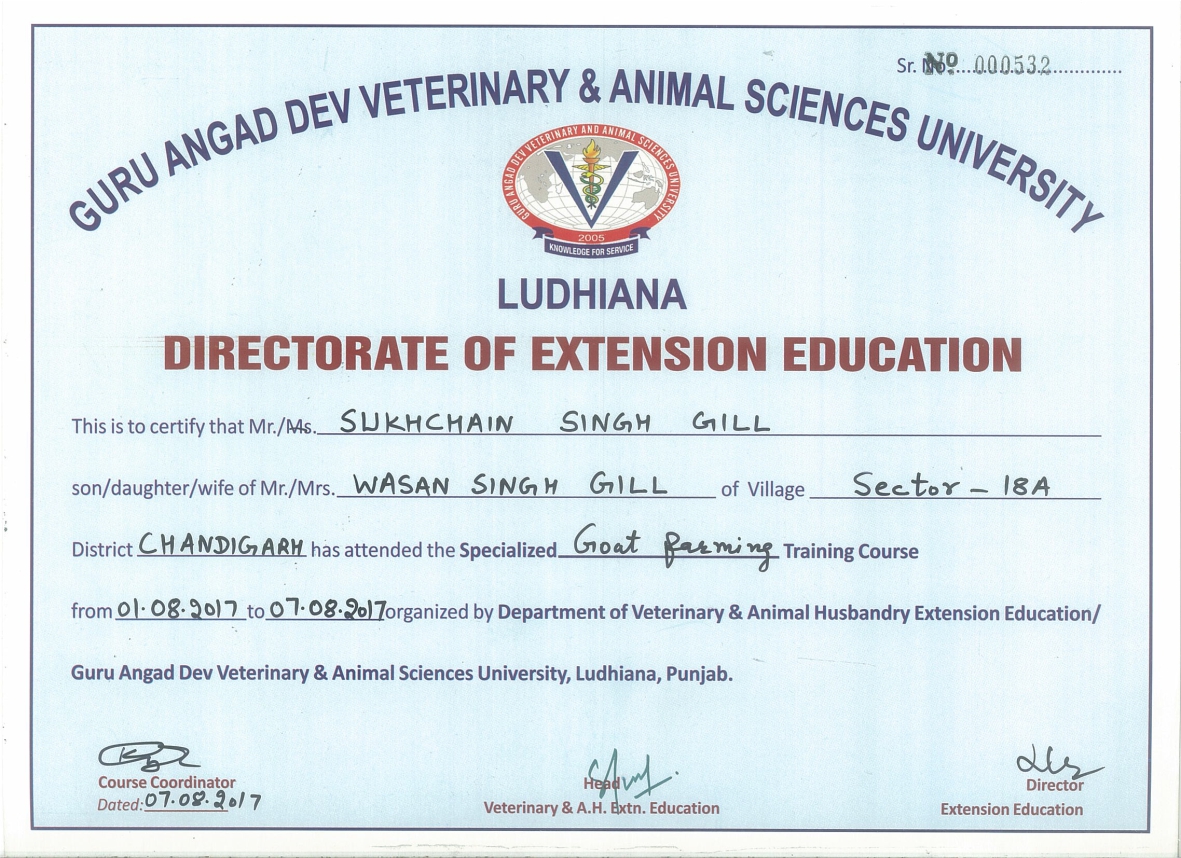 Sr. No. Nº 000532
GURU ANGAD DEV VETERINARY & ANIMAL SCIENCES UNIVERSITY
GURU ANGAD DEV VETERINARY AND ANIMAL SCIENCES UNIVERSITY
2005
KNOWLEDGE FOR SERVICE
LUDHIANA
DIRECTORATE OF EXTENSION EDUCATION
This is to certify that Mr./Ms. SUKHCHAIN SINGH GILL
son/daughter/wife of Mr./Mrs. WASAN SINGH GILL of Village Sector - 18A
District CHANDIGARH has attended the Specialized Goat farming Training Course
from 01.08.2017 to 07.08.2017 organized by Department of Veterinary & Animal Husbandry Extension Education/
Guru Angad Dev Veterinary & Animal Sciences University, Ludhiana, Punjab.
Course Coordinator
Dated: 07.08.2017
Head
Veterinary & A.H. Extn. Education
Director
Extension Education